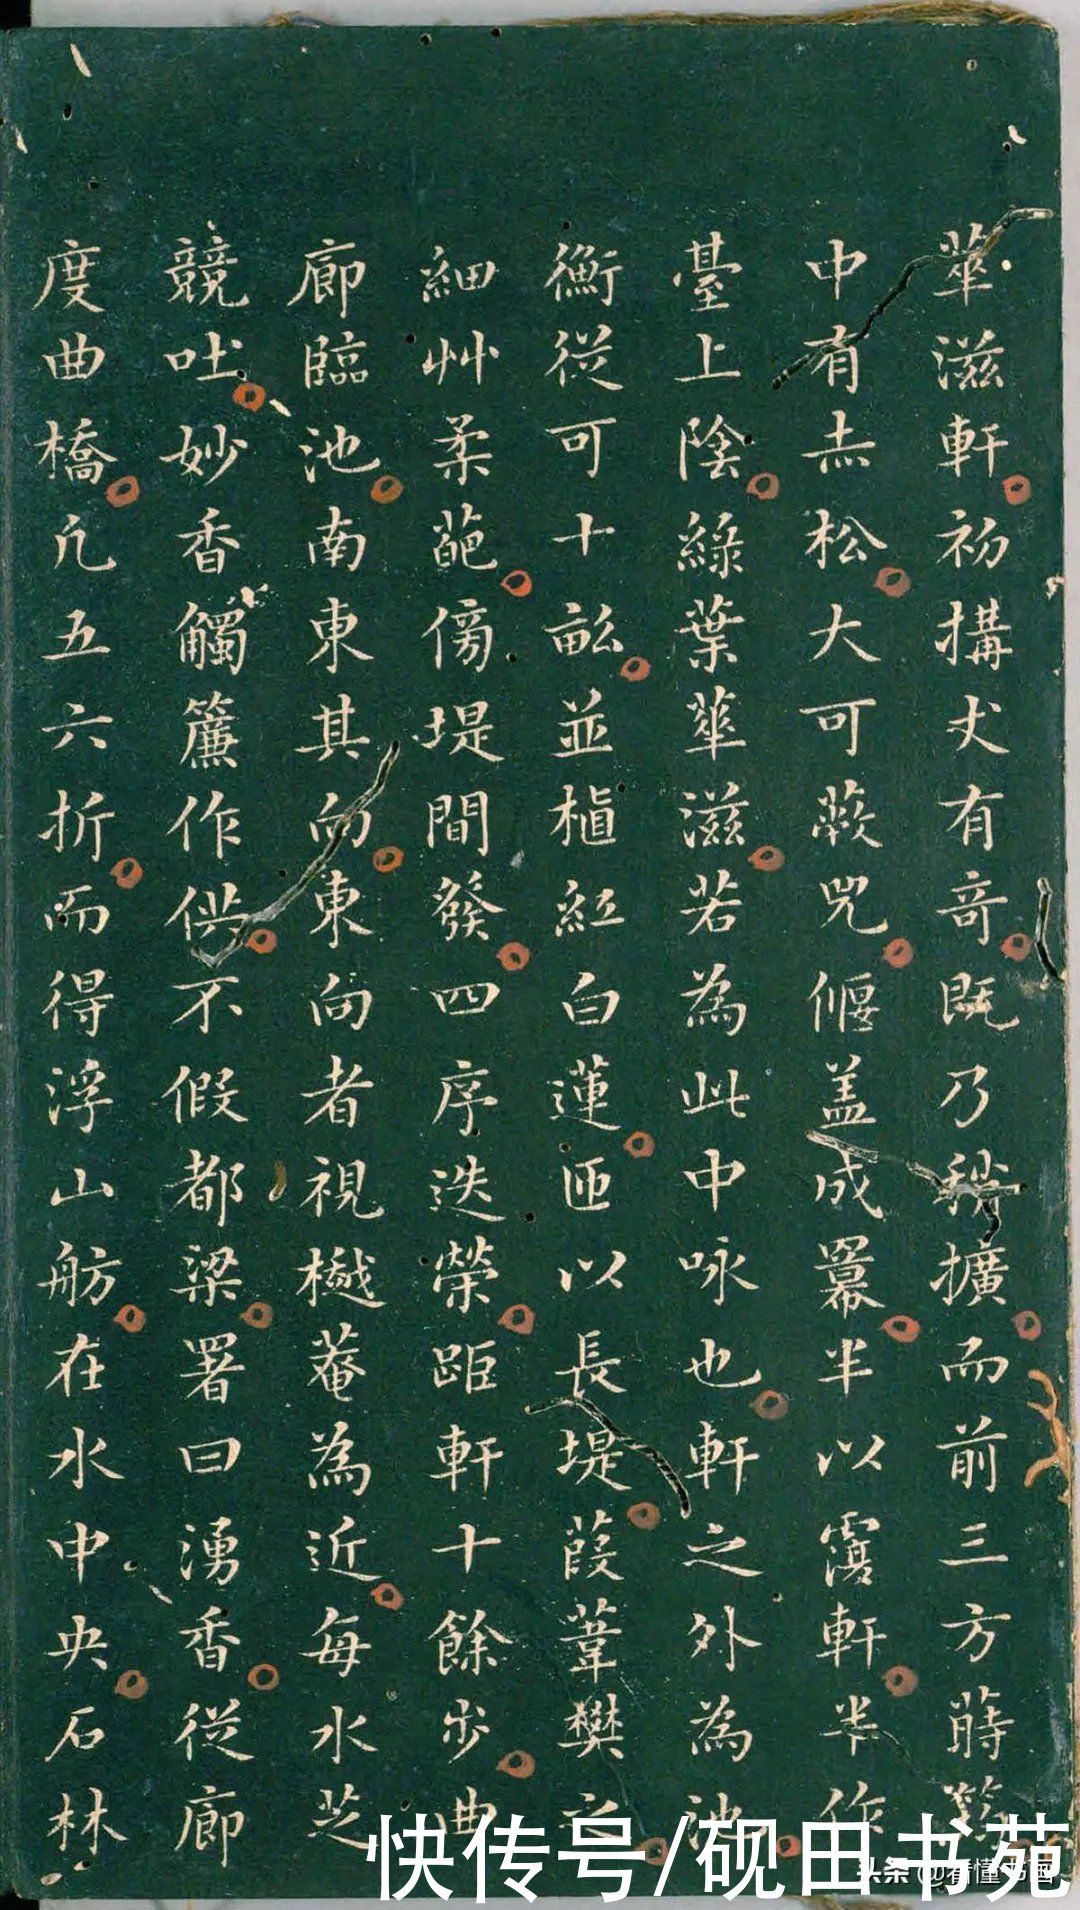 華滋軒初搆丈有奇既乃稍擴而前三方蒔筠
中有赤松大可蔽兕偃盖成冪半以覆軒半作
臺上陰綠葉華滋若為此中咏也軒之外為池
衡從可十畝並植紅白蓮匝以長堤葭葦樊之
細艸柔葩傍堤間發四序迭榮距軒十餘步曲
廊臨池南東其向東向者視樾菴為近每水芝
競吐妙香觸簾作供不假都梁署曰湧香從廊
度曲橋凢五六折而得浮山舫在水中央石林
快传号/砚田书苑
头条 @看懂书画